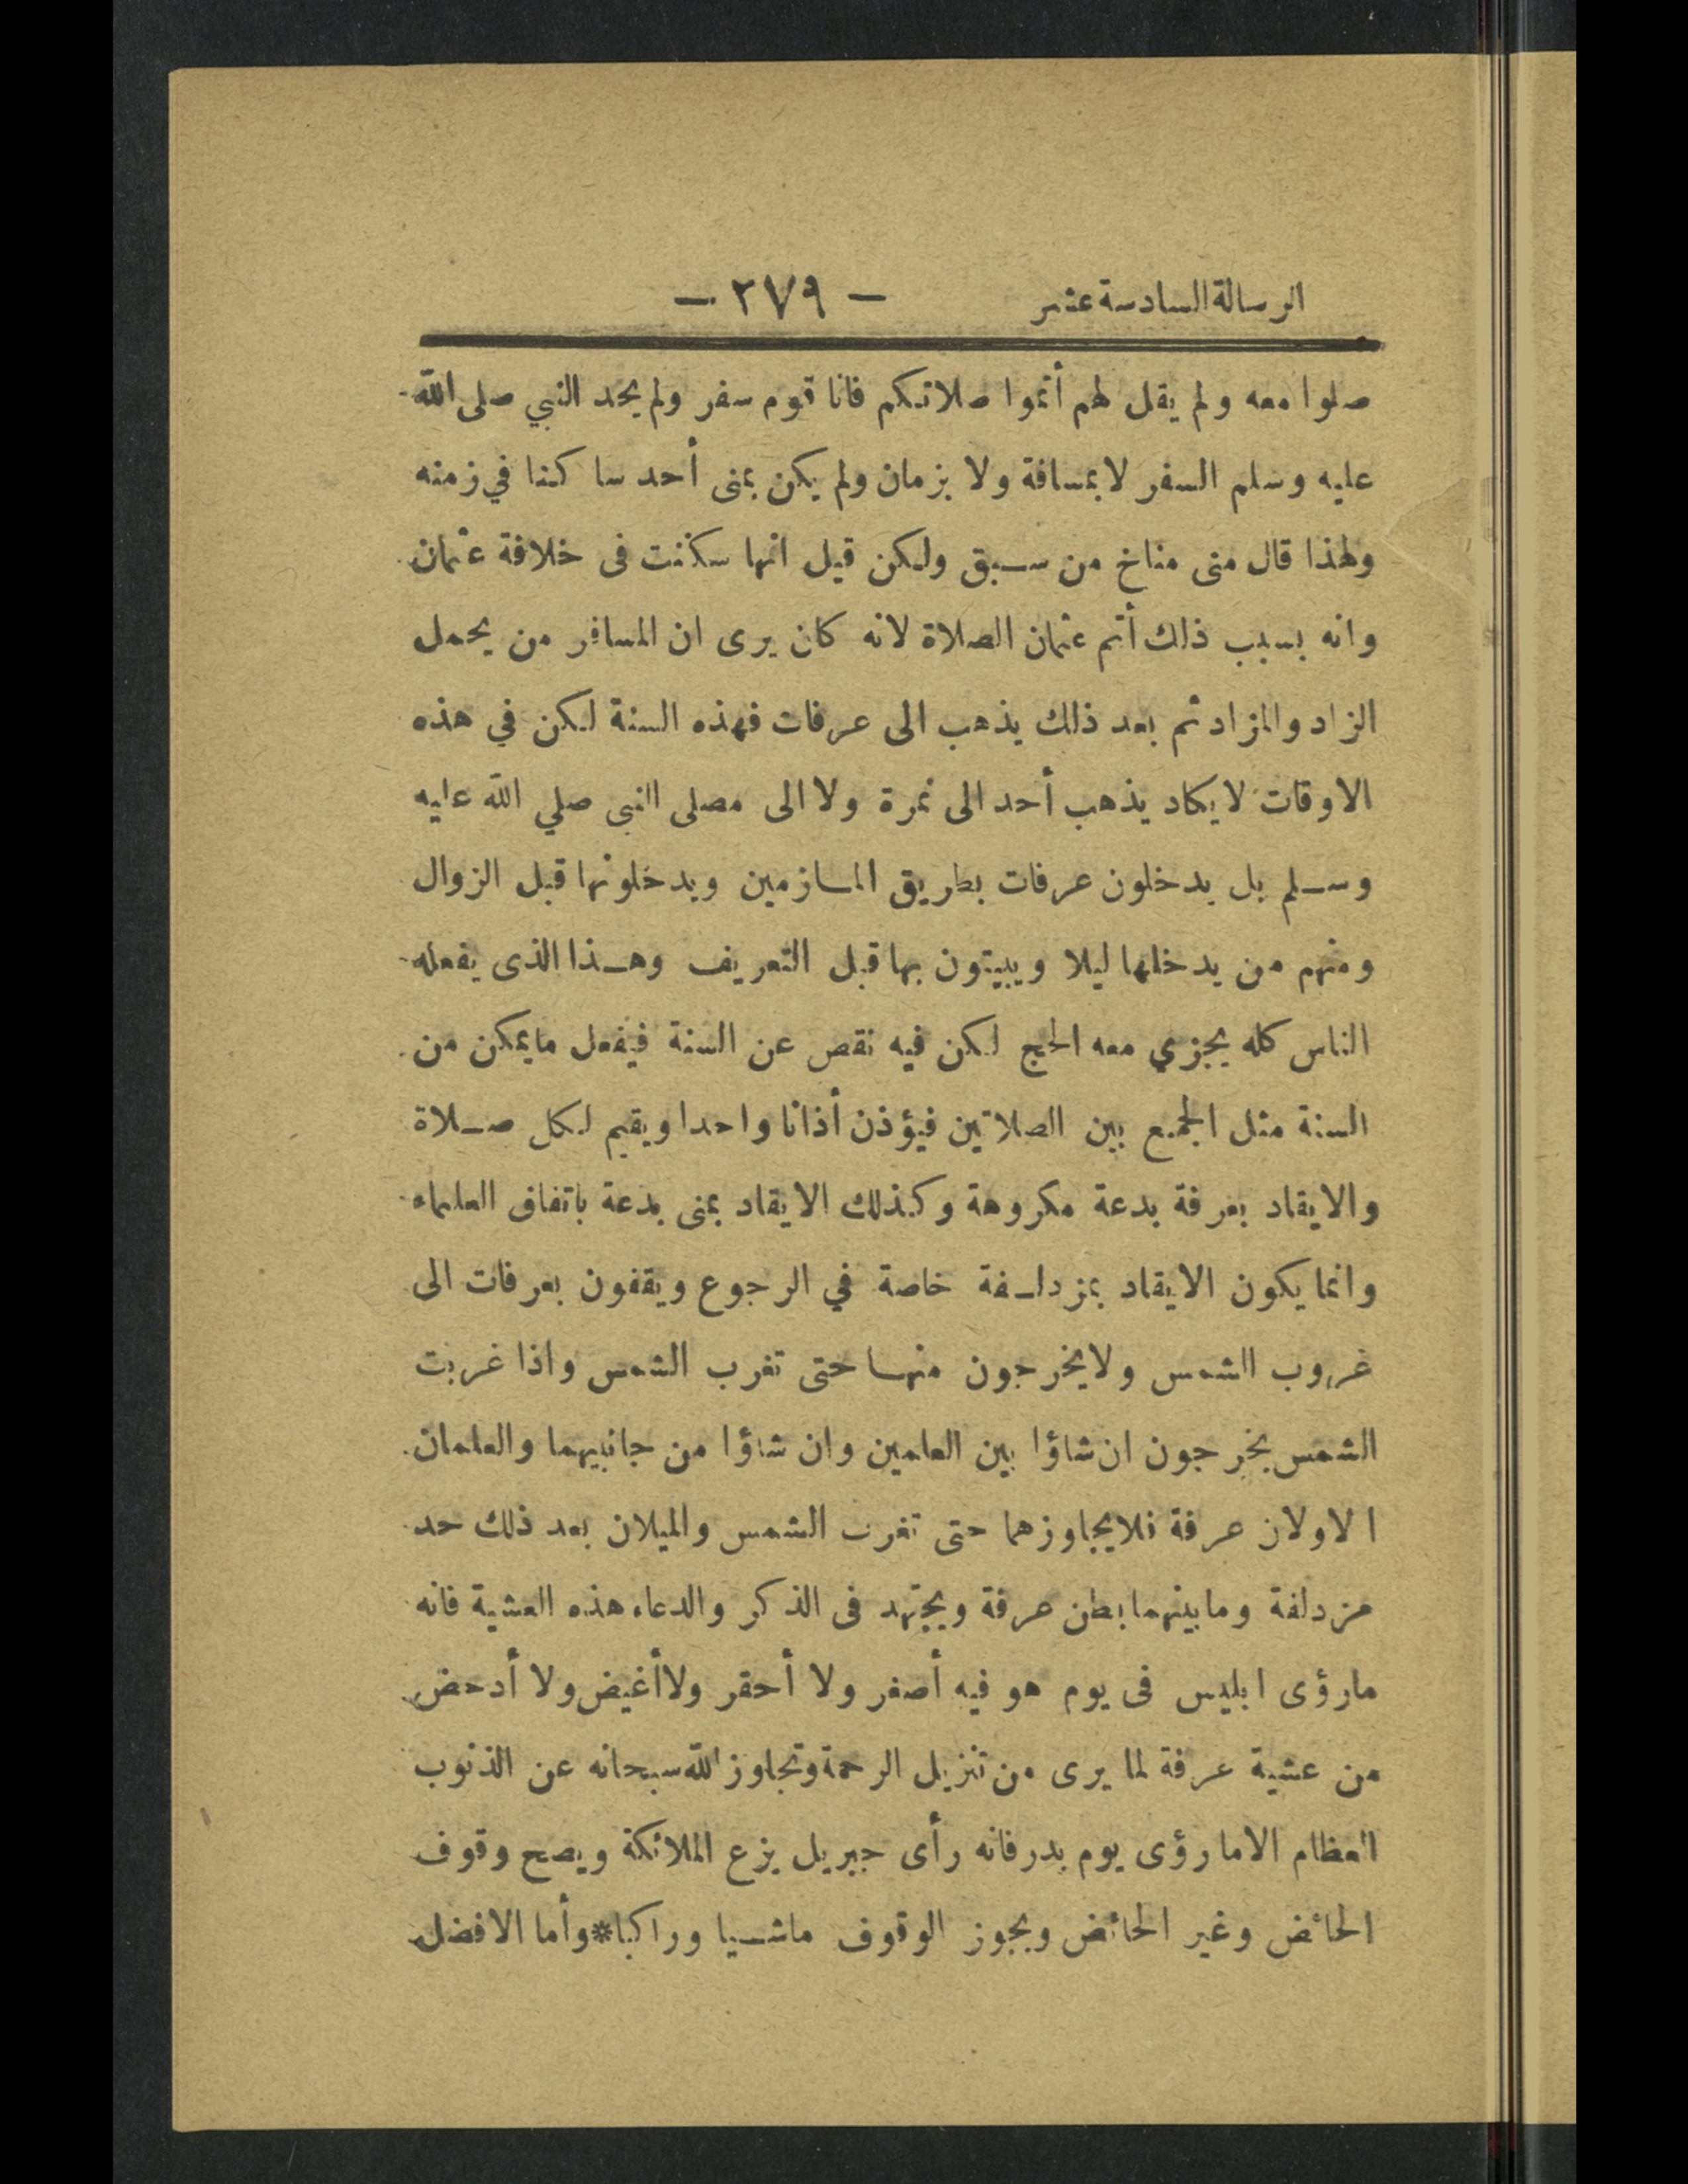 الرسالة السادسة عشر — ٣٧٩ —
صلوا معه ولم يقل لهم أتموا صلاتكم فانا قوم سفر ولم يحد النبي صلى الله
عليه وسلم السفر لا بمسافة ولا بزمان ولم يكن بمنى أحد ساكنا في زمنه
ولهذا قال منى مناخ من سبق ولكن قيل انها سكنت فى خلافة عثمان
وانه بسبب ذلك أتم عثمان الصلاة لانه كان يرى ان المسافر من يحمل
الزاد والمزاد ثم بعد ذلك يذهب الى عرفات فهذه السنة لكن في هذه
الاوقات لا يكاد يذهب أحد الى نمرة ولا الى مصلى النبى صلي الله عليه
وسلم بل يدخلون عرفات بطريق المازمين ويدخلونها قبل الزوال
ومنهم من يدخلها ليلا ويبيتون بها قبل التعريف وهذا الذى يفعله
الناس كله يجزي معه الحج لكن فيه نقص عن السنة فيفعل ما يمكن من
السنة مثل الجمع بين الصلاتين فيؤذن أذانا واحدا ويقيم لكل صلاة
والايقاد بعرفة بدعة مكروهة وكذلك الايقاد بمنى بدعة باتفاق العلماء
وانما يكون الايقاد بمزدلفة خاصة في الرجوع ويقفون بعرفات الى
غروب الشمس ولا يخرجون منها حتى تغرب الشمس واذا غربت
الشمس يخرجون ان شاؤا بين العلمين وان شاؤا من جانبيهما والعلمان
الاولان عرفة فلا يجاوزهما حتى تغرب الشمس والميلان بعد ذلك حد
مزدلفة وما بينهما بطن عرفة ويجتهد فى الذكر والدعاء هذه العشية فانه
مارؤى ابليس فى يوم هو فيه أصغر ولا أحقر ولا أغيض ولا أدحض
من عشية عرفة لما يرى من تنزيل الرحمة وتجاوز الله سبحانه عن الذنوب
العظام الا مارؤى يوم بدر فانه رأى جبريل يزع الملائكة ويصح وقوف
الحائض وغير الحائض ويجوز الوقوف ماشيا وراكبا * وأما الافضل